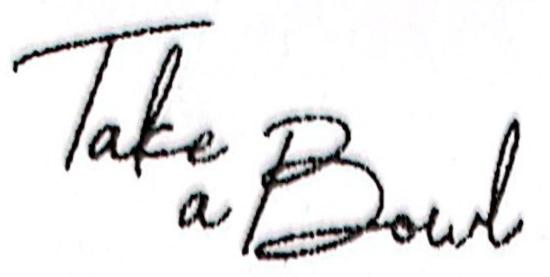 Take
a Bowl